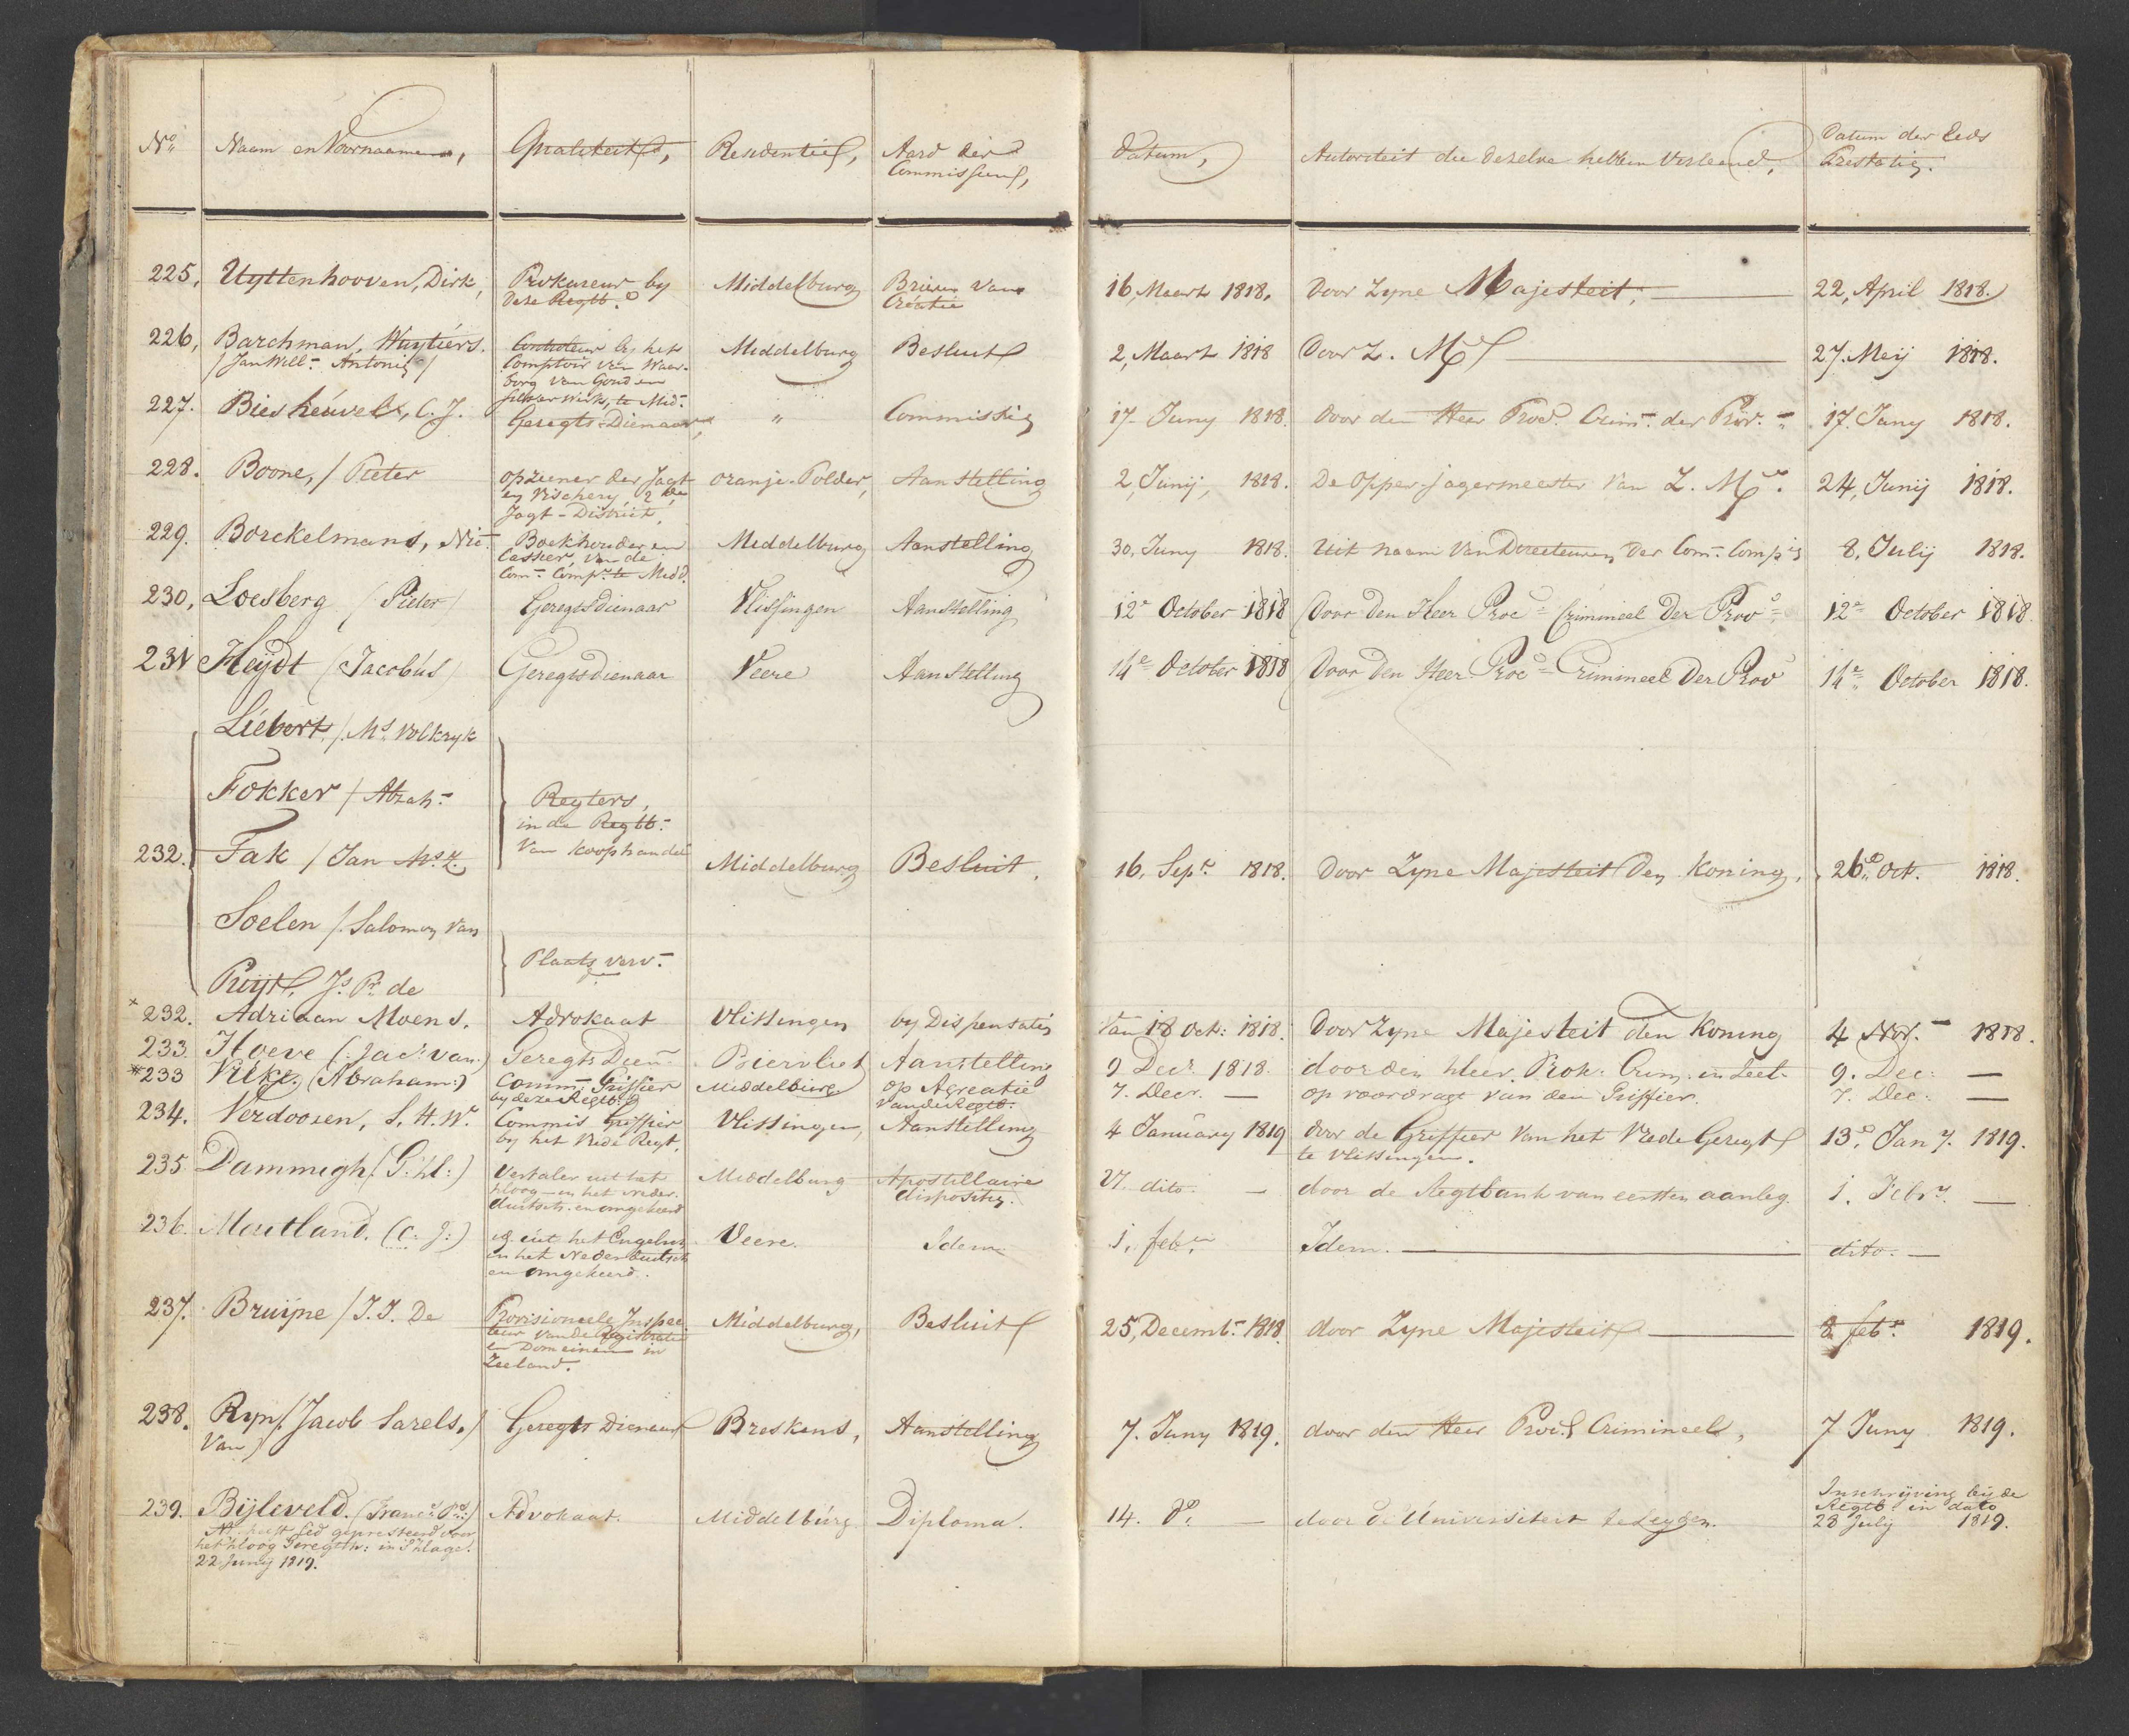 No. Naam en Voornaamen, Qualiteit, Residentie, Aard der Commissien, Datum, Autoriteit die dezelve hebben Verleend, Datum der Eeds Prestatie.
225, Uyttenhooven, Dirk, Prokureur by Middelburg Brieven van 16, Maart 1818, Door Zyne Majesteit, 22, April 1818.
deze Regtb. Creatie
226, Barchman, Wuytiers. Controleur by het Middelburg Besluit 2, Maart 1818 Door Z. M. 27. Meij 1818.
/Jan Will. Antonie/ Comptoir van Waar-
borg van Goud en
Zilver werk, te Mid.
227. Biesheuvel, C. J. Geregts-Dienaar, " Commissie 17 Juny 1818. Door den Heer Proc. Crim. der Prov. 17. Juny 1818.
228. Boone, / Pieter opziener der Jagt Oranje-Polder, Aanstelling 2, Junij, 1818. De Opper-jagermeester van Z. M. 24, Junij 1818.
en Vischery, 2de
Jagt-District,
229. Borckelmans, Nic. Boekhouder en Middelburg Aanstelling 30, Juny 1818. Uit naam Van Directeuren der Com. Comp. 8, Julij 1818.
Cassier, van de
Com. Comp. te Midd.
230, Loesberg (Pieter) Geregtsdienaar Vlissingen Aanstelling 12e October 1818 Door den Heer Proc. Crimineel der Prov. 12e October 1818.
231 Heijdt (Jacobus) Geregtsdienaar Veere Aanstelling 14e October 1818 Door den Heer Proc. Crimineel der Prov 14e October 1818.
Liebert, /Mr. Volkryk
Fokker / Abrah. Regters,
in de Regtb.
232. Fak / Jan Mz. van Koophandel Middelburg Besluit, 16, Sepr. 1818. Door Zyne Majesteit den Koning, 26e Oct. 1818.
Soelen / Salomon Van
Plaats verv.
Puijt, Js. Pr. de
x 232. Adriaan Moens. Advokaat Vlissingen by Dispensatie Van 18 Oct: 1818. Door Zyne Majesteit den Koning 4 Nov. 1818.
233. Hoeve (Jac. van) Geregts Dien. Biervliet Aanstelling 9 Decr. 1818. door den Heer Prok: Crim. in Zeel. 9. Dec: —
* 233 Vrike, (Abraham:) Comm. Griffier Middelburg op Acreatie 7. Decr. — op voordragt van den Griffier. 7. Dec: —
by deze Regtb. van de Regtb.
234. Verdoosen, S. H. Wr. Commis Griffier Vlissingen, Aanstelling 4 January 1819 door de Griffier van het Vrede Geregt 13e Jan 7. 1819.
by het Vrede Regt, te Vlissingen.
235 Dammigh (G: H:) Vertaler uit het Middelburg Apostillaire 27. dito. — door de Regtbank van eersten aanleg. 1. Febry. —
Hoog- in het Neder- dispositie.
duitsch. en omgekeerd
236. Moutland. (C: J:) id. uit het Engelsch Veere. Idem. 1. feb. Idem. — dito. —
in het Nederduitsch
en omgekeerd.
237. Bruijne / J. J. De Provisioneele Inspec- Middelburg, Besluit 25, Decemb. 1818. door Zyne Majesteit 8 feb. 1819.
teur van de Registratie
en Domeinen in
Zeeland.
238. Ryn /. Jacob Sarels. / Geregts Dienaar Breskens, Aanstelling 7. Juny 1819. door den Heer Proc. Crimineel, 7 Juny 1819.
Van /
239. Bijleveld. (Franc. Ps.) Advokaat. Middelburg. Diploma. 14. do. — door de Universiteit te Leyden. Inschrijving bij de
NB. heeft Eed gepresteerd voor Regtb. in dato
het Hoog Geregth: in 'sHage. 28 July 1819.
22 Juny 1819.